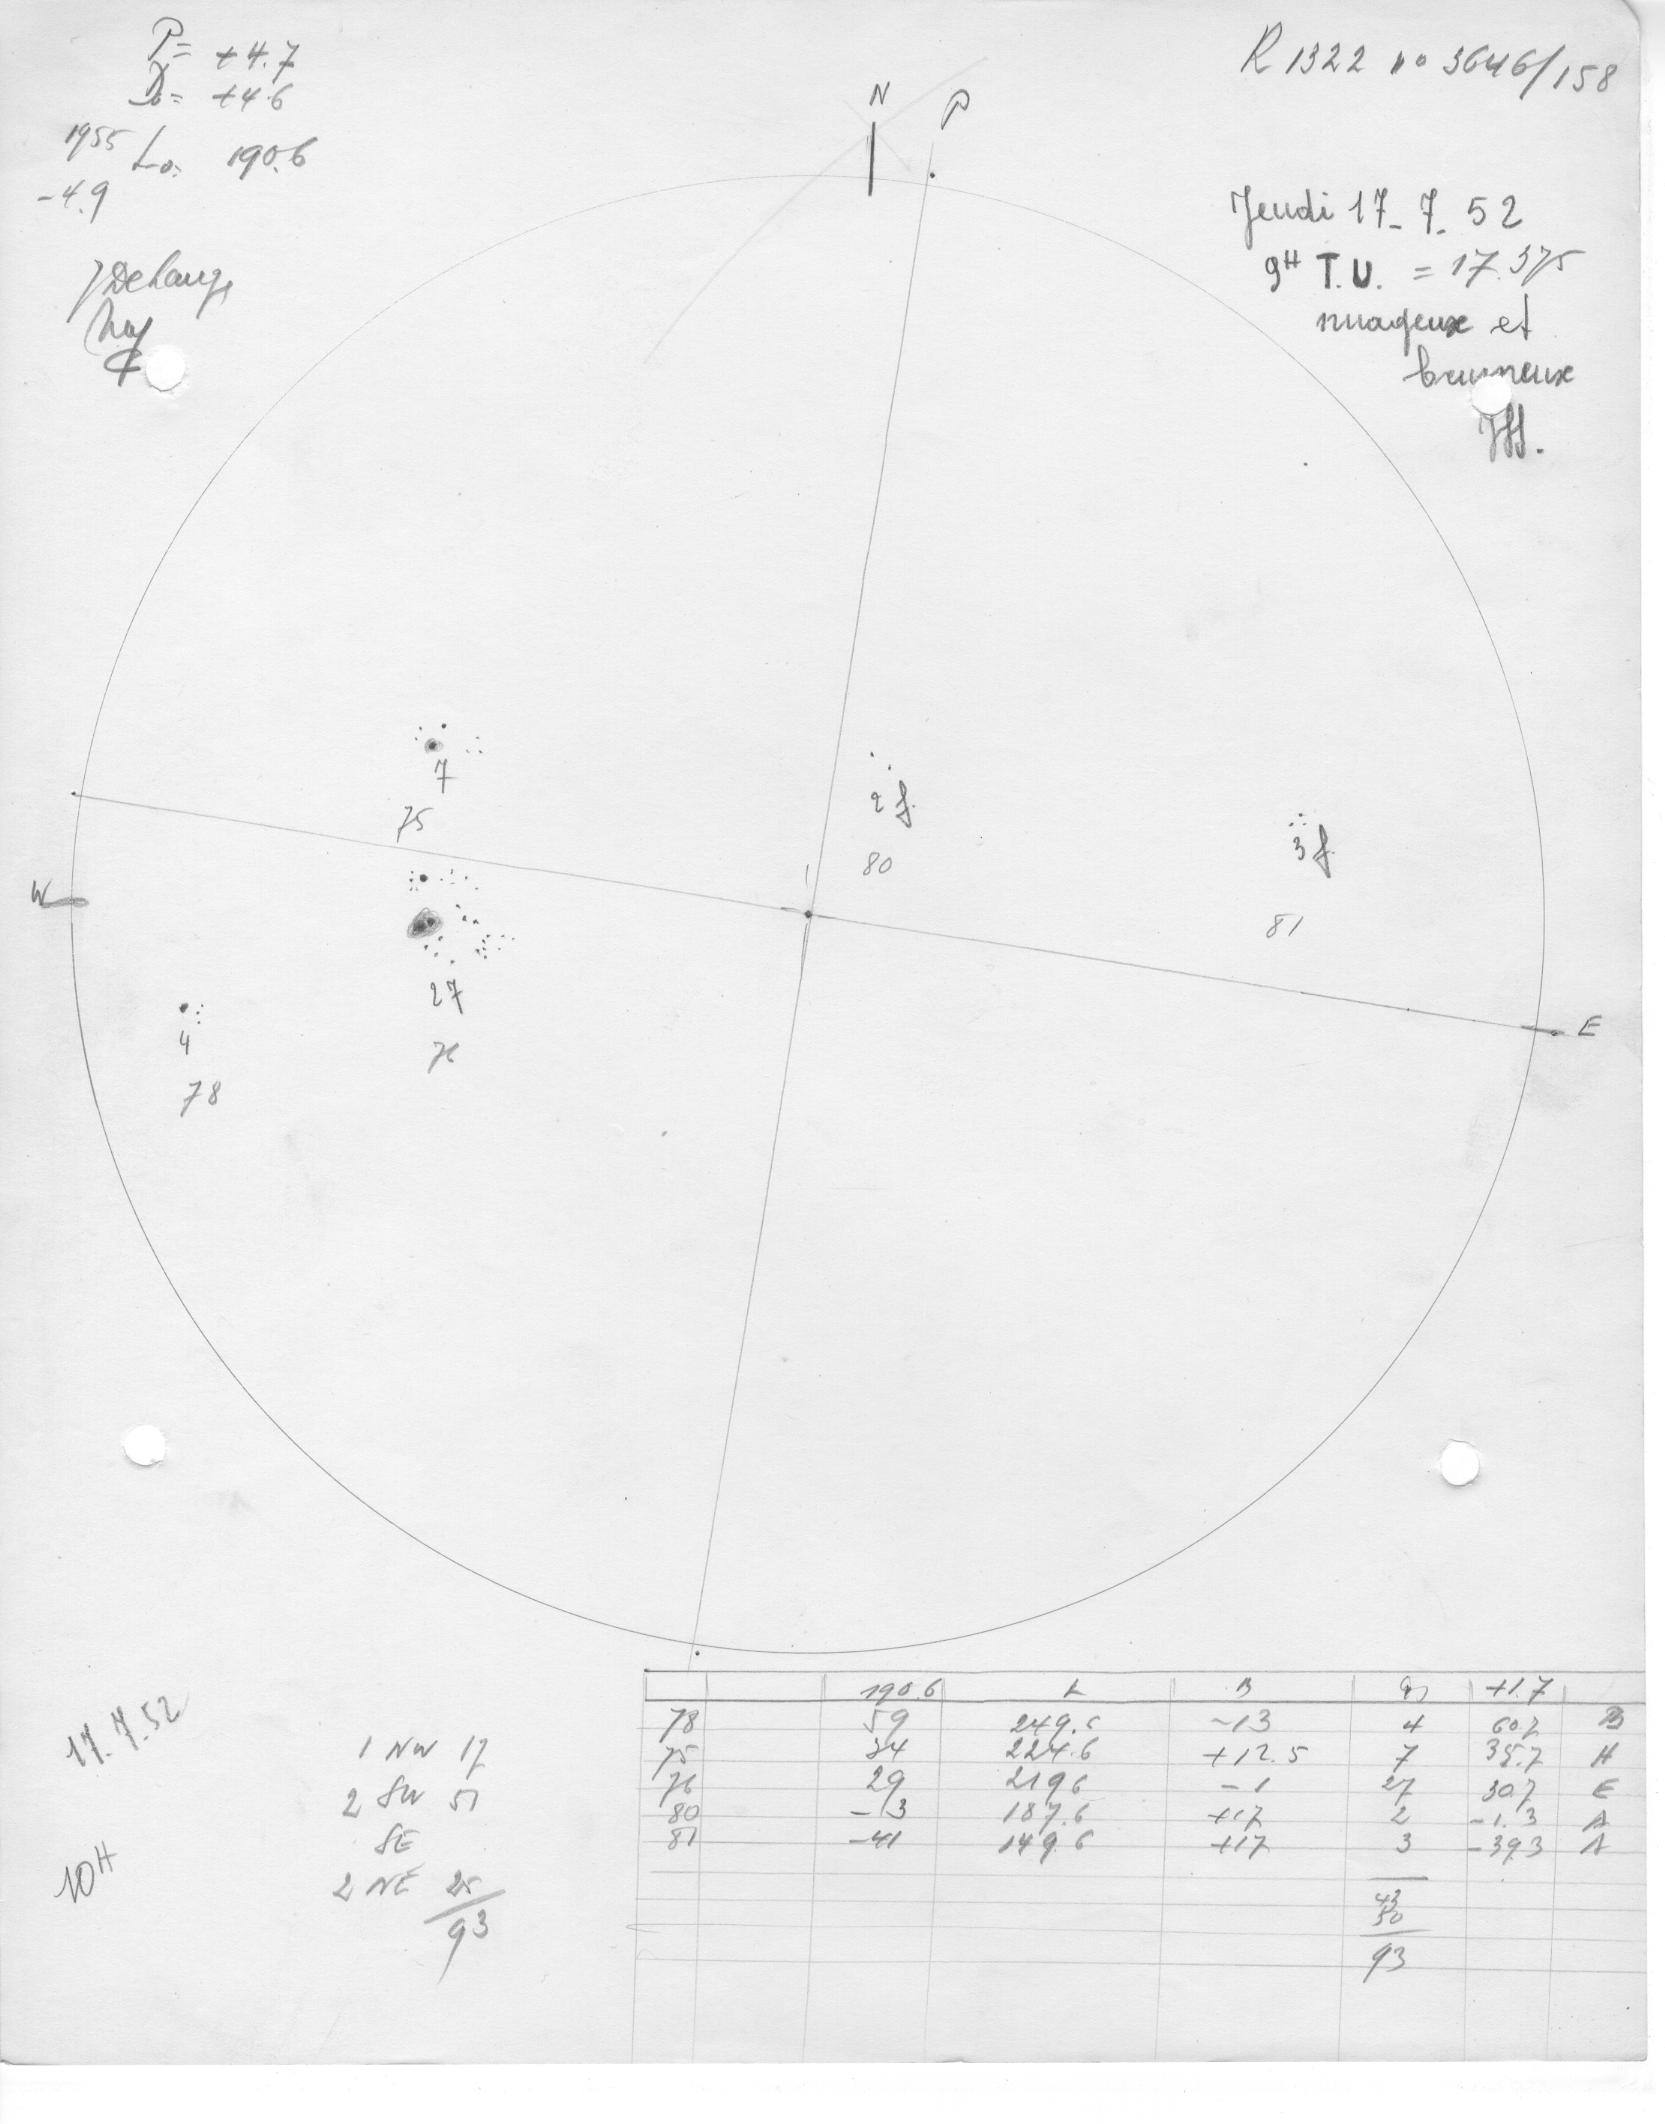 P= +4.7
D= +4.6
1955 Lo: 190.6
-4.9
N
P
R 1322 no 3646/158
Jeudi 17-7-52
9H T.U. = 17.375
nuageux et
brumeux
7
75
2 f.
80
3 f.
81
W
27
76
E
4
78
17.7.52
10H
1 NW 17
2 SW 51
SE
2 NE 25
93
190.6 L B +1.7
78 59 249.6 -13 4 60.7 B
75 34 224.6 +12.5 7 35.7 H
76 29 219.6 -1 27 30.7 E
80 -3 187.6 +17 2 -1.3 A
81 -41 149.6 +17 3 -39.3 A
43
50
93